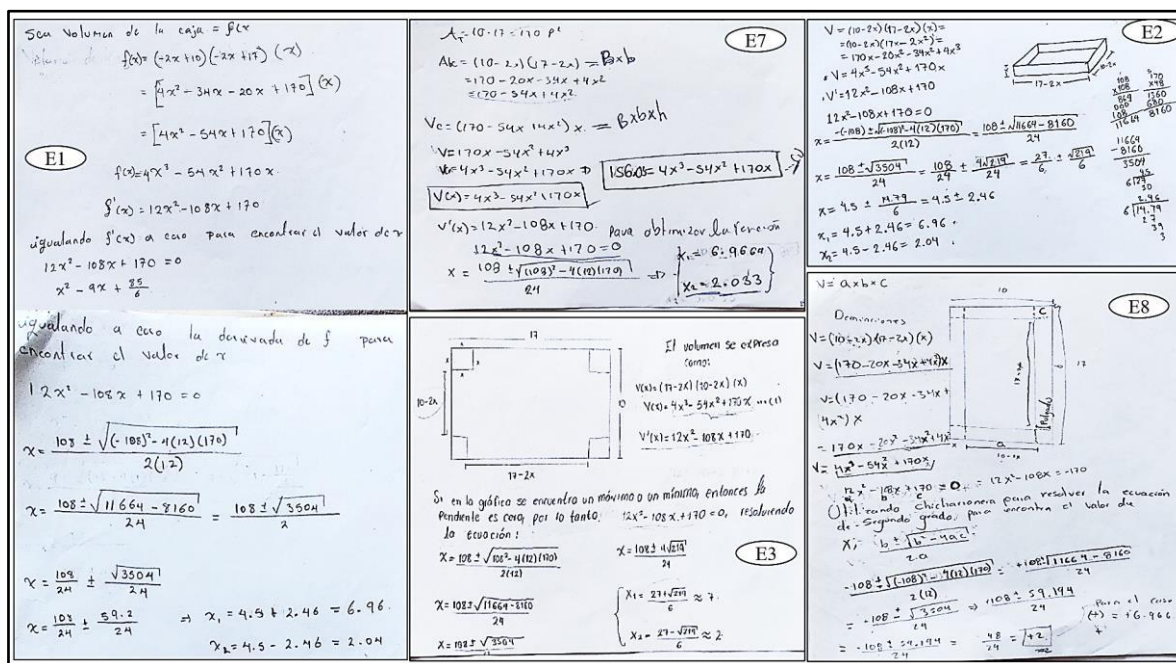 Sea Volumen de la caja = f(x
f(x) = (-2x+10)(-2x+17)(x)
= [4x² - 34x - 20x + 170](x)
= [4x² - 54x + 170](x)
E1
f(x) = 4x³ - 54x² + 170x
f'(x) = 12x² - 108x + 170
igualando f'(x) a cero para encontrar el valor de x
12x² - 108x + 170 = 0
x² - 9x + 85/6
igualando a cero la derivada de f para
encontrar el valor de x
12x² - 108x + 170 = 0
x = 108 ± √(-108)² - 4(12)(170) / 2(12)
x = 108 ± √11664 - 8160 / 24 = 108 ± √3504 / 2
x = 108/24 ± √3504/24
x = 108/24 ± 59.2/24 ⇒ x₁ = 4.5 + 2.46 = 6.96
x₂ = 4.5 - 2.46 = 2.04
E7
= 10·17 = 170 p²
(10-2x)(17-2x) = Bxb
= 170 - 20x - 34x + 4x²
= 170 - 54x + 4x²
Vc = (170 - 54x + 4x²) x = Bxbxh
V = 170x - 54x² + 4x³
= 4x³ - 54x² + 170x ⇒ 156.03 = 4x³ - 54x² + 170x
V(x) = 4x³ - 54x² + 170x
V'(x) = 12x² - 108x + 170 para obtimizar la función
12x² - 108x + 170 = 0
x = 108 ± √(108)² - 4(12)(170) / 24 ⇒ x₁ = 6.9664
x₂ = 2.033
17
10-2x
x
17-2x
El volumen se expresa
como:
V(x) = (17-2x)(10-2x)(x)
V(x) = 4x³ - 54x² + 170x ...(1)
V'(x) = 12x² - 108x + 170
Si en la gráfica se encuentra un máximo o un mínimo, entonces la
pendiente es cero, por lo tanto, 12x² - 108x + 170 = 0, resolviendo
la ecuación:
E3
x = 108 ± √108² - 4(12)(170) / 2(12)
x = 108 ± √11664 - 8160 / 24
x = 108 ± √3504
x = 108 ± 4√219 / 24
x₁ = 27 + √219 / 6 ≈ 7
x₂ = 27 - √219 / 6 ≈ 2
E2
V = (10-2x)(17-2x)(x) =
= (10-2x)(17x - 2x²) =
= 170x - 20x² - 34x² + 4x³
V = 4x³ - 54x² + 170x
V' = 12x² - 108x + 170
12x² - 108x + 170 = 0
17-2x
10-2x
x = -(-108) ± √(-108)² - 4(12)(170) / 2(12) = 108 ± √11664 - 8160 / 24
x = 108 ± √3504 / 24 = 108/24 ± 4√219/24 = 27/6 ± √219/6
x = 4.5 ± 14.79/6 = 4.5 ± 2.46
x₁ = 4.5 + 2.46 = 6.96
x₂ = 4.5 - 2.46 = 2.04
11664
- 8160
3504
E8
V = a x b x c
10
c
17
17-2x
a
10-2x
V = (10-2x)(17-2x)(x)
V = (170 - 20x - 34x + 4x²)x
V = (170 - 20x - 34x +
4x²) x
= 170x - 20x² - 34x² + 4x³
V = 4x³ - 54x² + 170x
12x² - 108x + 170 = 0 = 12x² - 108x = -170
Utilizando chicharronera para resolver la ecuación
de segundo grado, para encontra el valor de
x,
b ± √b² - 4ac / 2a
-108 ± √(-108)² - 4(12)(170) / 2(12) = +108 ± √11664 - 8160 / 24
= -108 ± √3504 / 24 ⇒ +108 ± 59.194 / 24
= -108 ± 59.194 / 24 = 48/24 = +2
Para el caso
(+) = +6.966